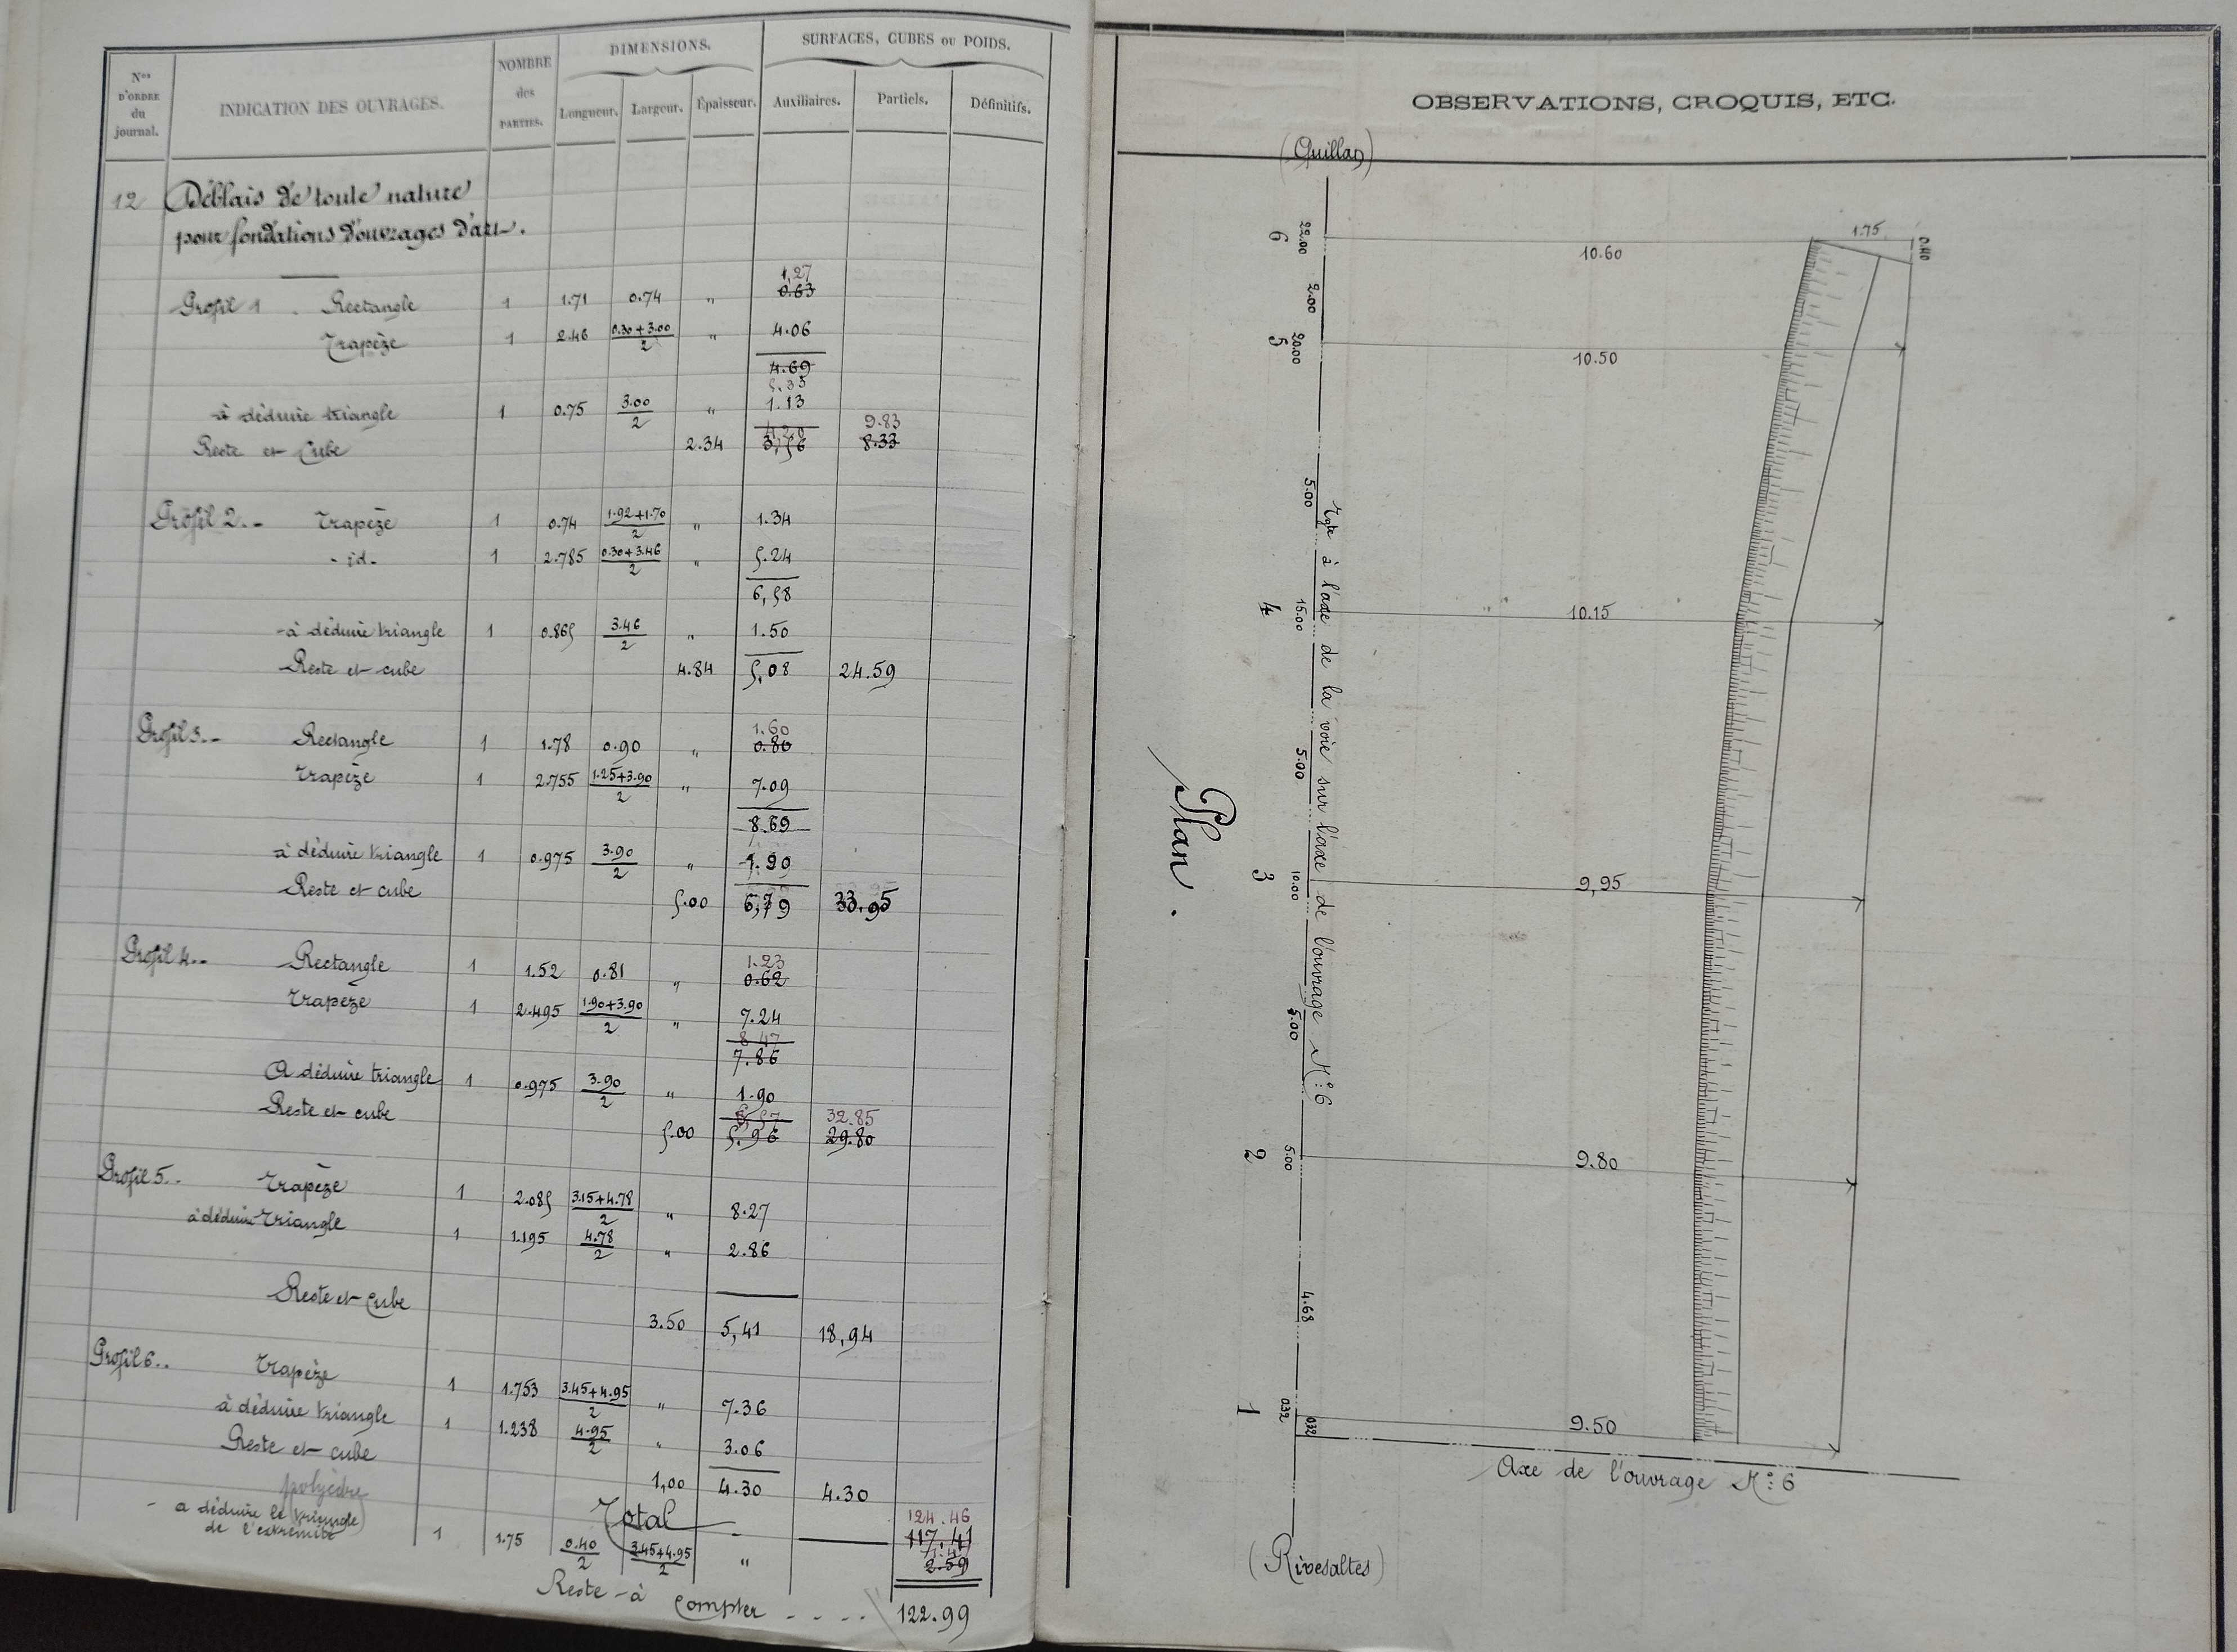 Nos D'ORDRE du journal.
INDICATION DES OUVRAGES.
NOMBRE des PARTIES.
DIMENSIONS.
Longueur. Largeur. Épaisseur.
SURFACES, CUBES ou POIDS.
Auxiliaires. Partiels. Définitifs.
12 Déblais de toute nature
pour fondations d'ouvrages d'art.
1,27
Profil 1 . Rectangle 1 1.71 0.74 " 0.63
Trapèze 1 2.46 0.30+3.00/2 " 4.06
4.69
5.33
à déduire triangle 1 0.75 3.00/2 " 1.13
4.20 9.83
Reste et Cube 2.34 3,56 8.33
Profil 2.- Trapèze 1 0.74 1.92+1.70/2 " 1.34
- id. 1 2.785 0.30+3.46/2 " 5.24
6,58
à déduire triangle 1 0.865 3.46/2 " 1.50
Reste et cube 4.84 5,08 24.59
1.60
Profil 3.- Rectangle 1 1.78 0.90 " 0.80
Trapèze 1 2.755 1.25+3.90/2 " 7.09
8.69
à déduire triangle 1 0.975 3.90/2 " 1.90
Reste et cube 5.00 6,79 33.95
1.23
Profil 4.. Rectangle 1 1.52 0.81 " 0.62
Trapèze 1 2.495 1.90+3.90/2 " 7.24
8.47
7.86
A déduire triangle 1 0.975 3.90/2 " 1.90
6,57 32.85
Reste et cube 5.00 5.96 29.80
Profil 5.. Trapèze 1 2.085 3.15+4.78/2 " 8.27
à déduire triangle 1 1.195 4.78/2 " 2.86
Reste et Cube 3.50 5,41 18,94
Profil 6.. Trapèze 1 1.753 3.45+4.95/2 " 7.36
à déduire triangle 1 1.238 4.95/2 " 3.06
Reste et cube 1,00 4.30 4.30
polyèdre
Total 124.46
117.41
- a déduire le (triangle)
de l'extrémité 1 1.75 0.40/2 3.45+4.95/2 " 1.47
2.59
Reste à compter - - - - 122.99
OBSERVATIONS, CROQUIS, ETC.
(Quillan)
6 22.00 10.60 1.75 0.40
2.00
5 20.00 10.50
5.00
4 15.00 10.15
5.00
3 10.00 9,95
5.00
2 5.00 9.80
4.68
1 0.32 0.32 9.50
à l'axe de la voie sur l'axe de l'ouvrage N° 6
Plan.
Axe de l'ouvrage N° 6
(Rivesaltes)